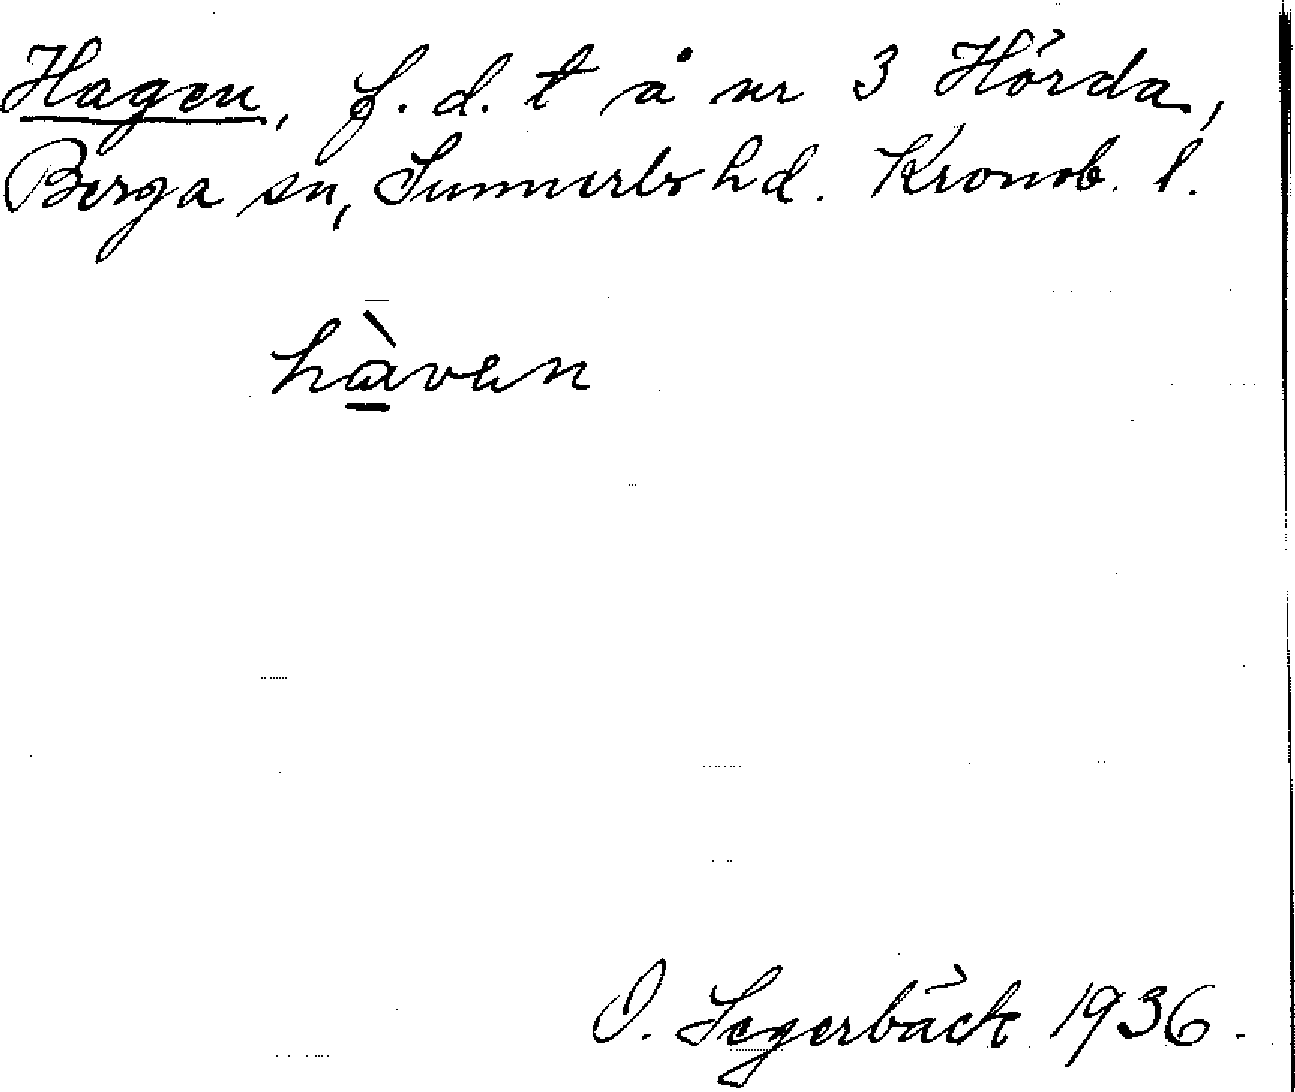 Hagen, f. d. t å nr 3 Hörda,
Berga sn, Sunnerbo hd. Kronob. l.
hà̱ven
O. Segerbäck 1936.